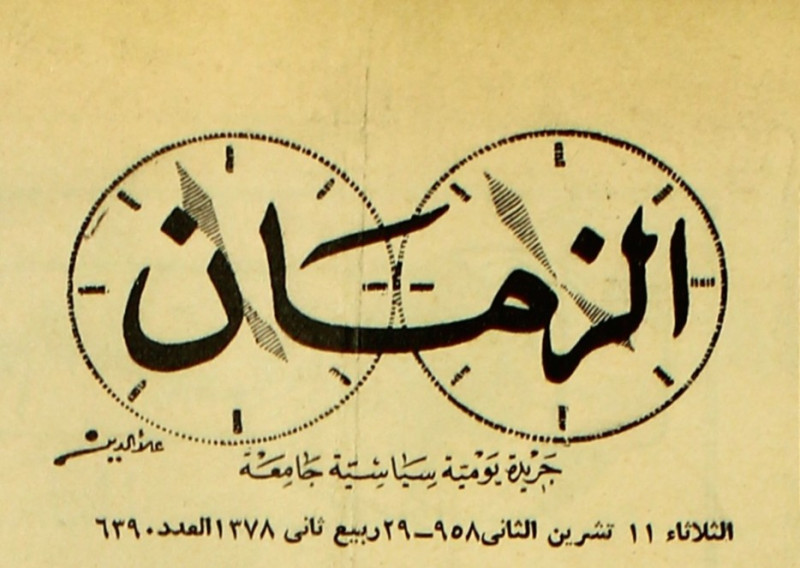 الزمان
علاء الدين
جَريدة يَوميّة سِيَاسِيّة جَامِعَة
الثلاثاء ١١ تشرين الثانى ٩٥٨ـ ٢٩ ربيع ثانى ١٣٧٨ العدد ٦٣٩٠